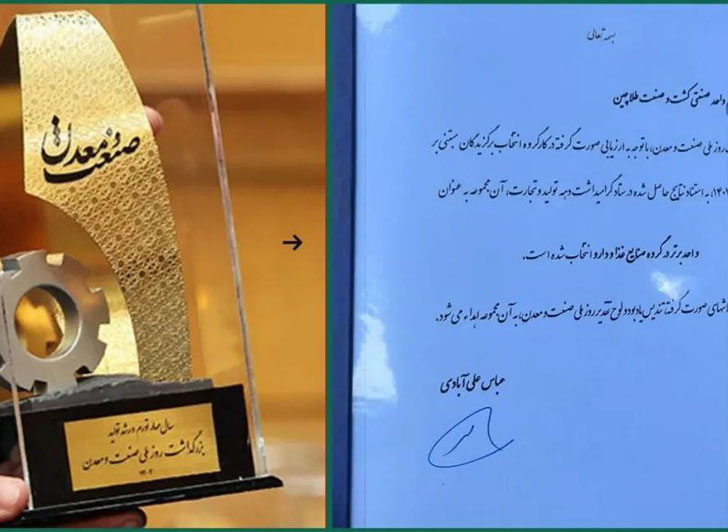 صنعت و معدن
سال مهار تورم و رشد تولید
بزرگداشت روز ملی صنعت و معدن
۱۴۰۲
بسمه تعالی
واحد صنعتی کشت و صنعت طلاچین
روز ملی صنعت و معدن، با توجه به ارزیابی صورت گرفته در کارگروه انتخاب برگزیدگان مبتنی بر
به استناد نتایج حاصل شده در ستاد گرامیداشت دهه تولید و تجارت، آن مجموعه به عنوان
واحد برتر در گروه صنایع غذا و دارو انتخاب شده است.
صورت گرفته، تندیس یادبود و لوح تقدیر روز ملی صنعت و معدن، به آن مجموعه اهداء می شود.
عباس علی آبادی